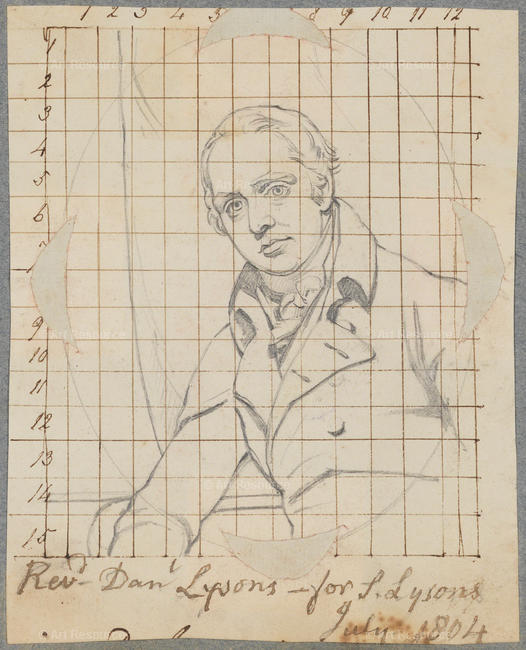 1 2 3 4 5 8 9 10 11 12
1
2
3
4
5
6
7
9
10
11
12
13
14
15
Revd- Danl Lysons - for S. Lysons
July 1804